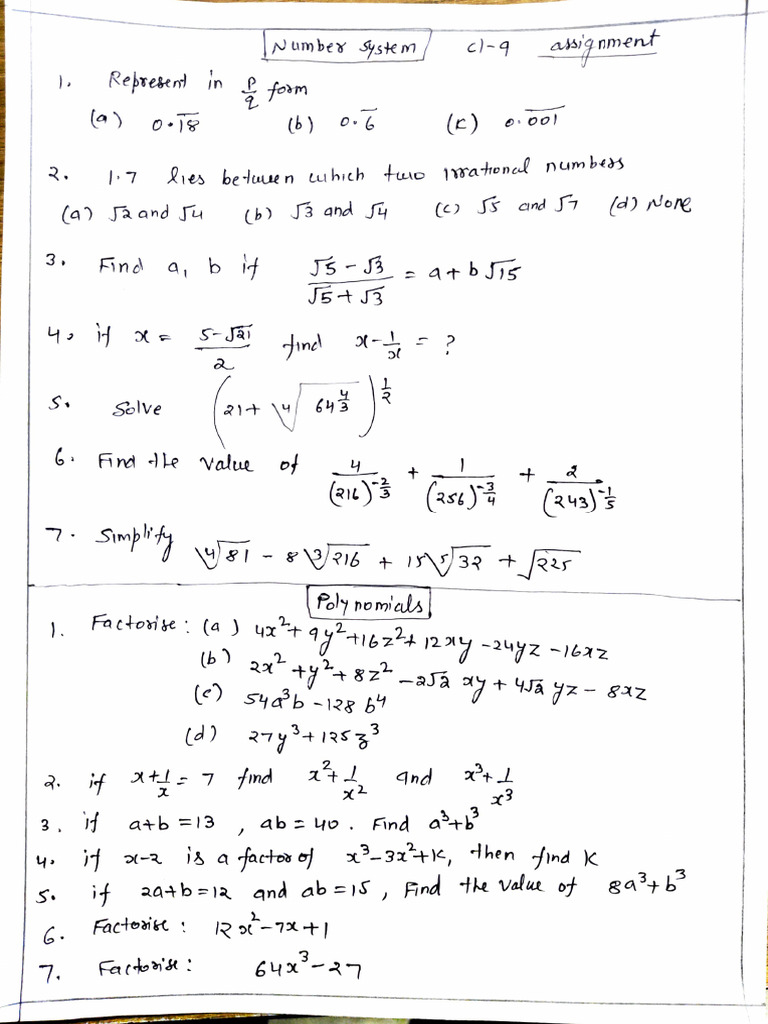 Number System cl-9 assignment
1. Represent in p/q form
(a) 0.1̅8̅ (b) 0.6̅ (c) 0.0̅0̅1̅
2. 1.7 lies between which two irrational numbers
(a) √2 and √4 (b) √3 and √4 (c) √5 and √7 (d) None
3. Find a, b if (√5 - √3)/(√5 + √3) = a + b√15
4. if x = (5-√21)/2 find x - 1/x = ?
5. Solve (21 + ∜(64^(4/3)))^(1/2)
6. Find the value of 4/(216)^(-2/3) + 1/(256)^(-3/4) + 2/(243)^(-1/5)
7. Simplify ∜81 - 8∛216 + 15 ⁵√32 + √225
Polynomials
1. Factorise: (a) 4x² + 9y² + 16z² + 12xy - 24yz - 16xz
(b) 2x² + y² + 8z² - 2√2 xy + 4√2 yz - 8xz
(c) 54a³b - 128b⁴
(d) 27y³ + 125z³
2. if x + 1/x = 7 find x² + 1/x² and x³ + 1/x³
3. if a+b = 13, ab = 40. Find a³+b³
4. if x-2 is a factor of x³-3x²+K, then find K
5. if 2a+b = 12 and ab = 15, Find the value of 8a³+b³
6. Factorise: 12x²-7x+1
7. Factorise: 64x³-27